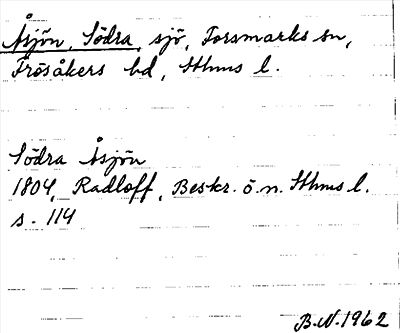 Åsjön, Södra, sjö, Forsmarks sn,
Frösåkers hd, Sthms l.
Södra Åsjön
1804, Radloff, Beskr. ö. n. Sthms l.
s. 114
B.N. 1962